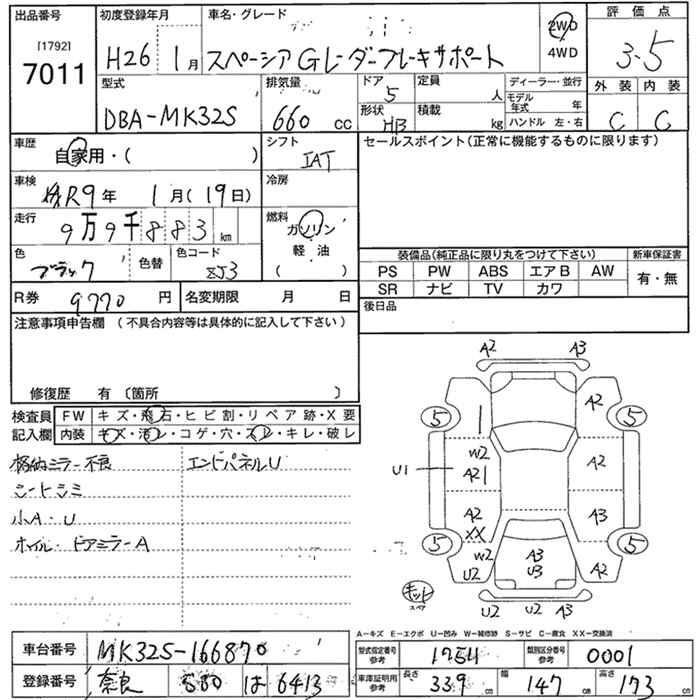 出品番号 [1792] 7011
初度登録年月 H26年 1月
車名・グレード スペーシア G レーダーブレーキサポート
2WD
4WD
評価点 3.5
型式 DBA-MK32S
排気量 660 cc
ドア 5
定員 人
形状 HB
積載 kg
ディーラー・並行
モデル年式 年
ハンドル 左・右
外装 内装
C C
車歴 自家用・( )
シフト IAT
セールスポイント(正常に機能するものに限ります)
車検 R9年 1月(19日)
冷房
走行 9万9千883km
燃料 ガソリン
軽油
( )
色 ブラック
色替
色コード ZJ3
装備品(純正品に限り丸をつけて下さい)
新車保証書
PS PW ABS エアB AW
SR ナビ TV カワ
有・無
R券 9770円
名変期限 月 日
後日品
注意事項申告欄 (不具合内容等は具体的に記入して下さい)
修復歴 有 (箇所 )
検査員記入欄
FW キズ・飛石・ヒビ割・リペア跡・X要
内装 キズ・汚レ・コゲ・穴・スレ・キレ・破レ
格納ミラー不良 エンドパネルU
シートシミ
小A・U
ホイル・ドアミラーA
A2 A3
5 A2 5
W2
U1 A2 A2
A2 A3
XX
5 W2 A3 5
U2 U3 A2
キット
スペア
U2 U2 A3
A-キズ E-エクボ U-凹み W-補修跡 S-サビ C-腐食 XX-交換済
車台番号 MK32S-166870
型式指定番号 参考 17511
類別区分番号 参考 0001
登録番号 奈良 580 は 6413
車庫証明用 参考 長さ 339cm 幅 147cm 高さ 173cm